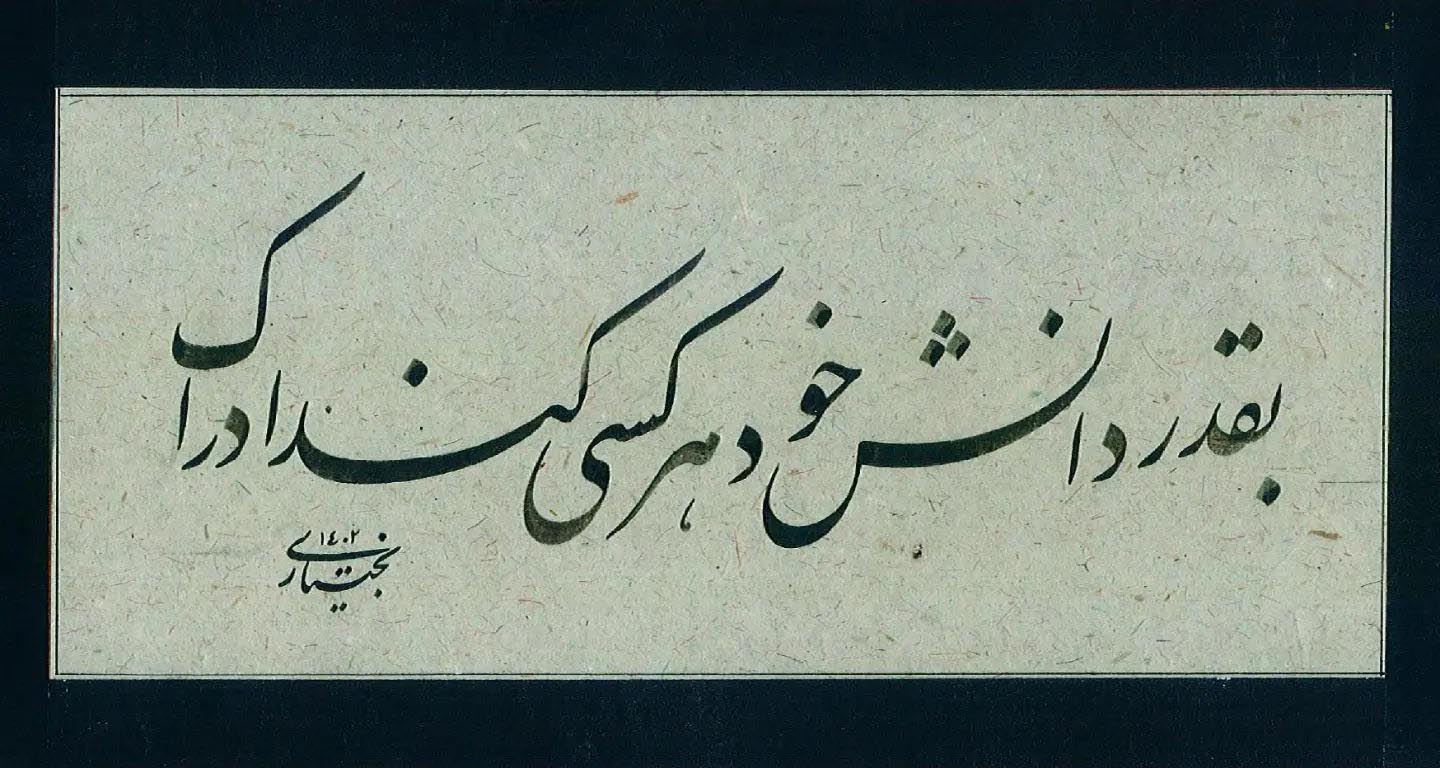 بقدر دانش خود هر کسی کند ادراک
۱٤۰۲
بختیاری